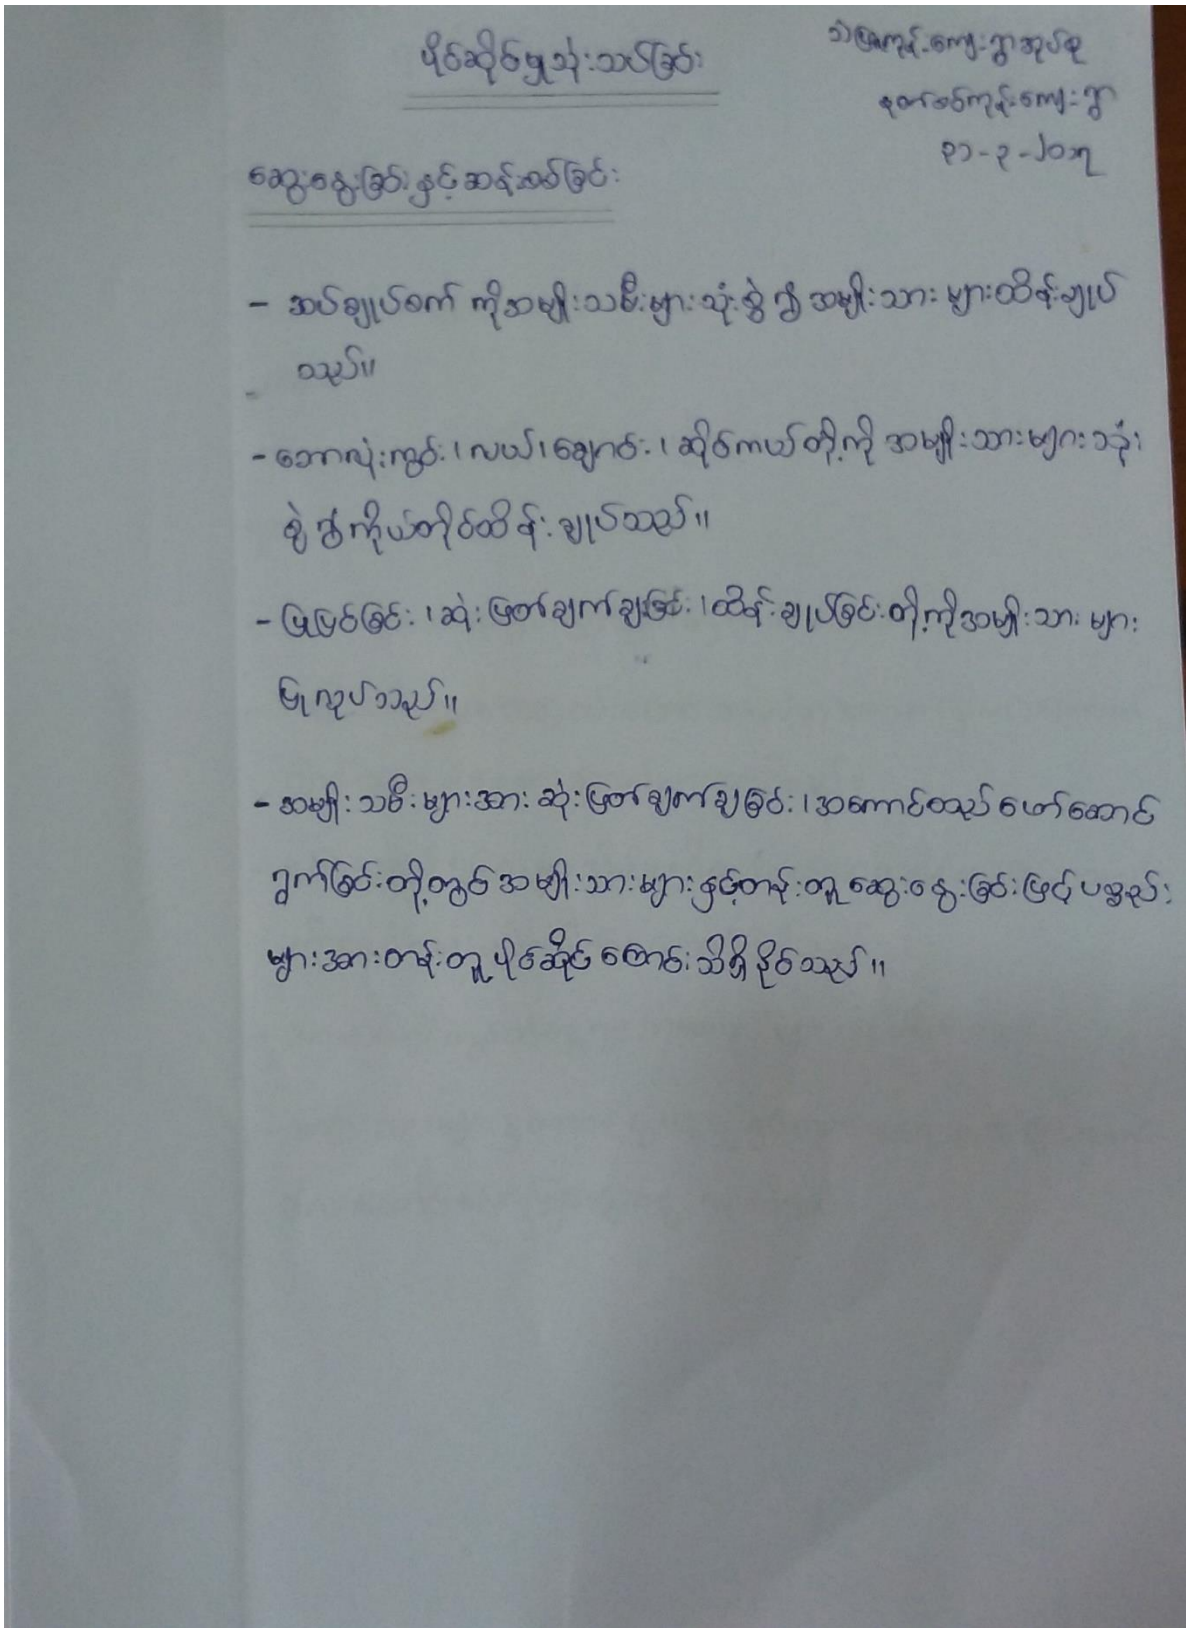 ပိုင်ဆိုင်မှုသုံးသပ်ခြင်း
သဲဖြူကုန်းကျေးရွာအုပ်စု
နတ်စင်ကုန်းကျေးရွာ
၃၁-၃-၂၀၁၇
ဆွေးနွေးခြင်းနှင့်ဆန်းစစ်ခြင်း
- အပ်ချုပ်စက် ကိုအမျိုးသမီးများသုံးစွဲ၍ အမျိုးသားများထိန်းချုပ်
သည်။
- ဘောလုံးကွင်း၊ လယ်၊ ချောင်း၊ ဆိုင်ကယ်တို့ကို အမျိုးသားများသုံး
စွဲ၍ကိုယ်တိုင်ထိန်းချုပ်သည်။
- ပြုပြင်ခြင်း၊ ဆုံးဖြတ်ချက်ချခြင်း၊ ထိန်းချုပ်ခြင်းတို့ကိုအမျိုးသားများ
ပြုလုပ်သည်။
- အမျိုးသမီးများအား ဆုံးဖြတ်ချက်ချခြင်း၊ အကောင်အထည်ဖော်ဆောင်
ရွက်ခြင်းတို့တွင် အမျိုးသားများနှင့်တန်းတူ ဆွေးနွေးခြင်းဖြင့် ပစ္စည်း
များအားတန်းတူပိုင်ဆိုင်ကြောင်းသိရှိနိုင်သည်။